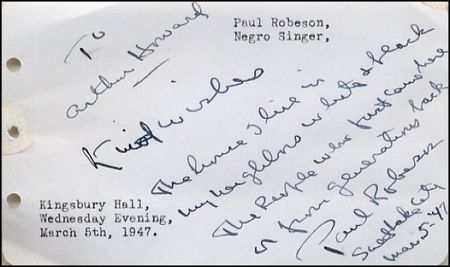 Paul Robeson,
Negro Singer,
To
Arthur Howard
Kind wishes
The house I live in
my neighbors white & black
The People who just came here
or from generations back
Paul Robeson
Salt Lake City
Mar 5 - '47
Kingsbury Hall,
Wednesday Evening,
March 5th, 1947.